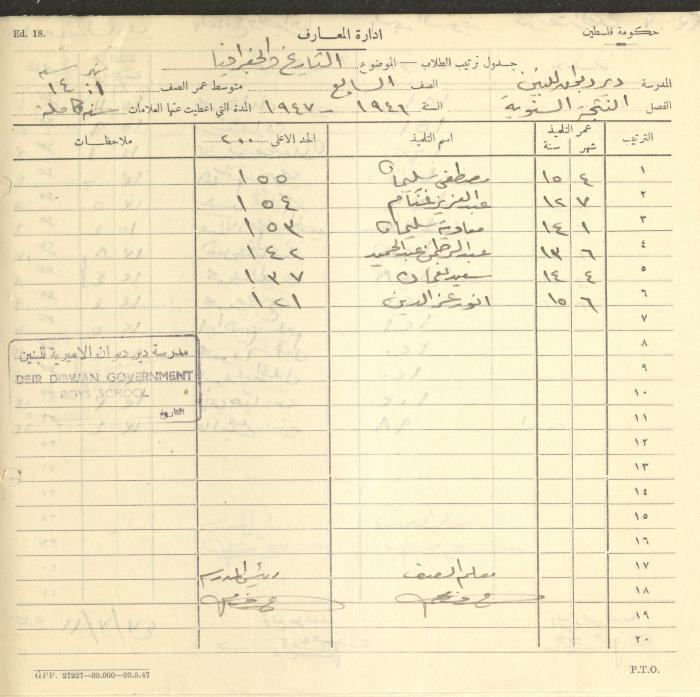 Ed. 18.
ادارة المعارف
حكومة فلسطين
جدول ترتيب الطلاب — الموضوع التاريخ والجغرافيا
المدرسة دير ديوان للبنين الصف السابع متوسط عمر الصف
شهر سنة
١ : ١٤
الفصل النتيجة السنوية السنة ١٩٤٦ – ١٩٤٧ المدة التي اعطيت عنها العلامات سنة كاملة
الترتيب عمر التلميذ شهر سنة اسم التلميذ الحد الاعلى ٢٠٠ ملاحظات
١ ٤ ١٥ مصطفى سليمان ١٥٥
٢ ٧ ١٢ عبد العزيز غنام ١٥٤
٣ ١ ١٤ معاوية سليمان ١٥٣
٤ ٦ ١٣ عبد الرحمن عبد الحميد ١٤٢
٥ ٤ ١٤ سعيد نعمان ١٣٧
٦ ٦ ١٥ انور عز الدين ١٢١
٧
٨
٩
١٠
١١
١٢
١٣
١٤
١٥
١٦
١٧
١٨
١٩
٢٠
مدرسة دير ديوان الاميرية للبنين
DEIR DIBWAN GOVERNMENT
BOYS SCHOOL
التاريخ
معلم الصف رئيس المدرسة
GPP. 27227—30.000—20.5.47
P.T.O.